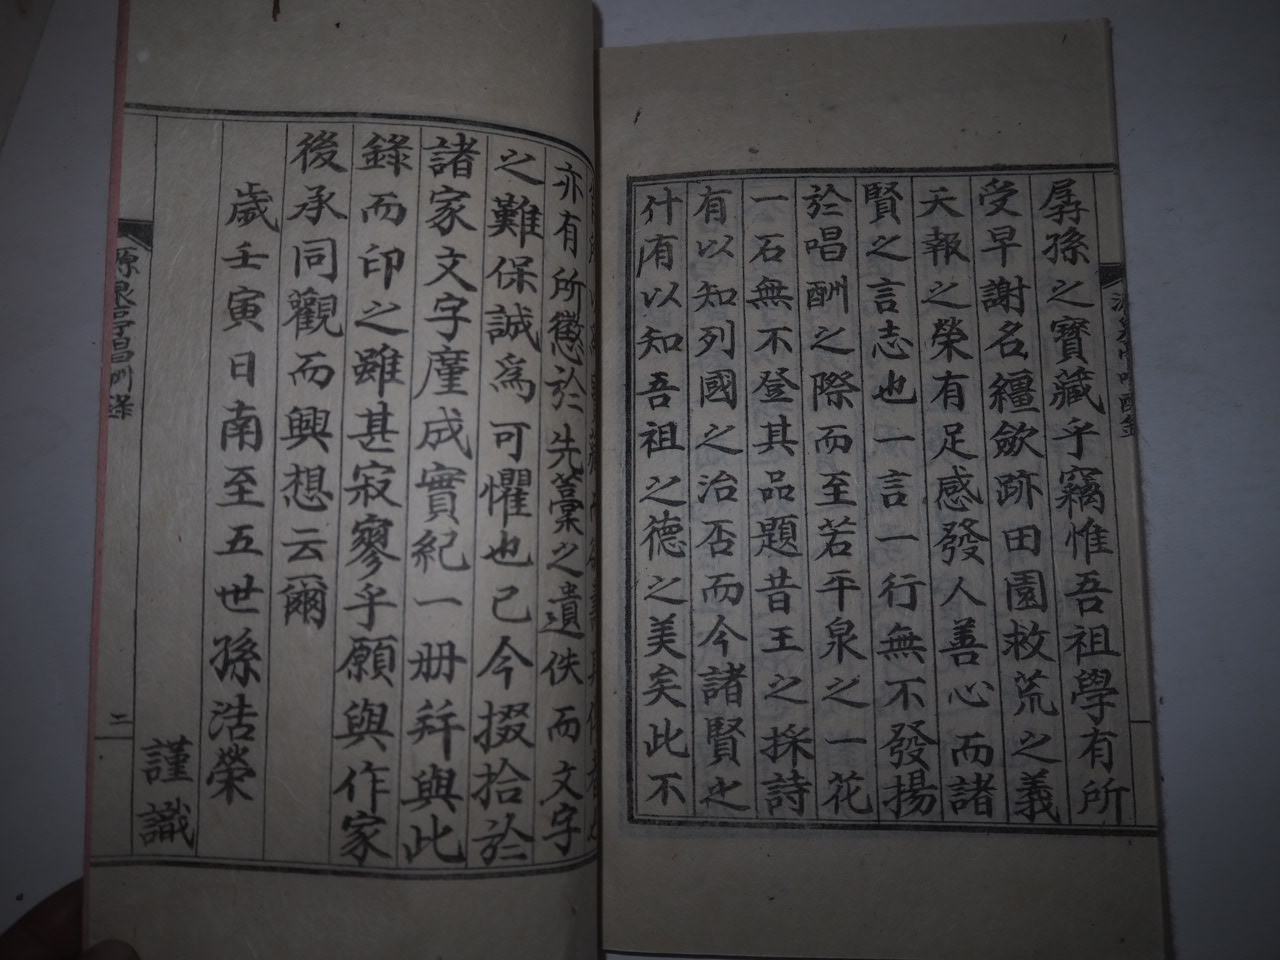 孱孫之寶藏乎竊惟吾祖學有所
受早謝名繮斂跡田園救荒之義
天報之榮有足感發人善心而諸
賢之言志也一言一行無不發揚
於唱酬之際而至若平泉之一花
一石無不登其品題昔王之採詩
有以知列國之治否而今諸賢之
什有以知吾祖之德之美矣此不
亦有所懲於先藁之遺佚而文字
之難保誠爲可懼也已今掇拾於
諸家文字廑成實紀一册幷與此
錄而印之雖甚寂寥乎願與作家
後承同觀而興想云爾
歲壬寅日南至五世孫浩榮
謹識
源泉亭唱酬錄
二